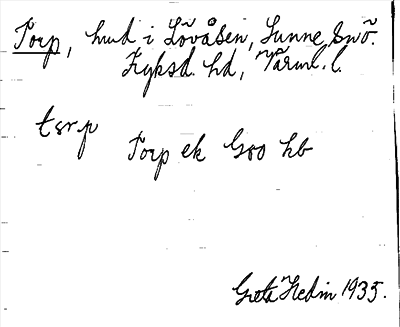 Torp, hmd i Lövåsen, Sunne snö.
Fryksd. hd, Värml. l.
tɷrp
Torp ek G00 hb
Greta Hedin 1935.